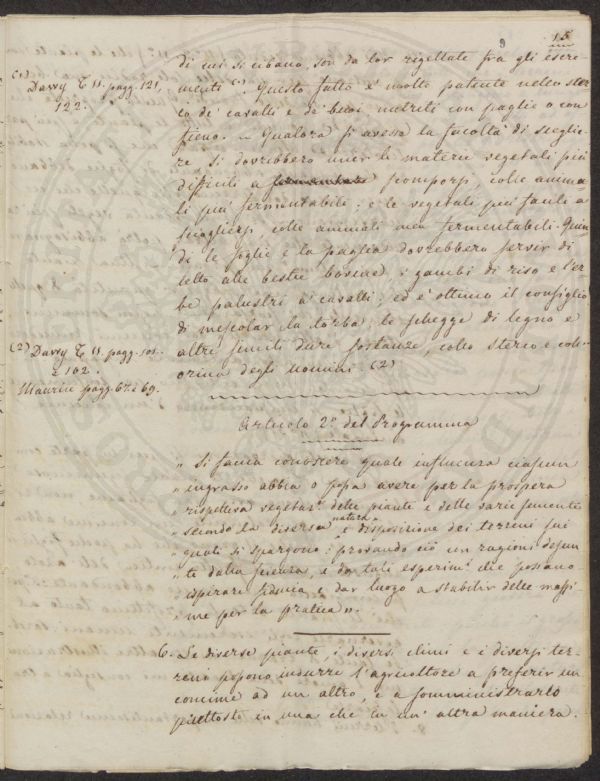 9
15
di cui si cibano, son da lor rigettate fra gli escre-
menti (1). Questo fatto è molto patente nello ster-
co de' cavalli e de' buoi nutriti con paglie o con
fieno. = Qualora si avesse la facoltà di sceglie-
re, si dovrebbero unir le materie vegetali più
difficili a fermentare scomporsi, colle anima-
li più fermentabili; e le vegetali più facili a
sciogliersi colle animali men fermentabili. Quin-
di le foglie e la paglia dovrebbero servir di
letto alle bestie bovine, i gambi di riso e l'er-
be palustri a' cavalli; ed è ottimo il consiglio
di mescolar la torba, le schegge di legno e
altre simili dure sostanze, collo sterco e coll'
orina degli uomini. (2)
(1) Davvy T. II. pagg. 121,
122.
(2) Davvy T. II. pagg. 101.
e 102.
Maurice pagg. 67. e 69.
Articolo 2.º del Programma
„ Si faccia conoscere quale influenza ciascun
„ ingrasso abbia o possa avere per la prospera
„ rispettiva vegetaz.e delle piante e delle varie sementi
„ secondo la diversa natura e disposizione dei terreni sui
„ quali si spargono: provando ciò con ragioni desun-
„ te dalla scienza, e da tali esperim.ti che possano
„ ispirare fiducia e dar luogo a stabilir delle massi-
„ me per la pratica „.
6. Le diverse piante, i diversi climi e i diversi ter-
reno possono indurre l'agricoltore a preferir un
concime ad un altro, e a somministrarlo
piuttosto in una che in un' altra maniera.